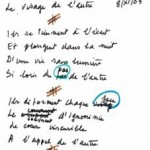 Le visage de l'autre
8/XI/03
Ils se minent à l'écart
Et plongent dans la nuit
D'une vie sans lumière
Si loin de pas de l'autre
Ils déforment chaque jour
Le d'ignominie
Le cœur insensible
A l'appel de l'autre